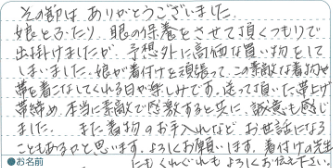 その節は ありがとうございました。
娘とふたり、眼の保養をさせて頂くつもりで
出掛けましたが、予想外に高価な買い物をして
しまいました。娘が着付けを頑張って、この素敵な着物や
帯を着こなしてくれる日が楽しみです。送って頂いた帯上げ
帯締め、本当に素敵で感激すると共に、誠意も感じ
ました。 また着物のお手入れなど お世話になる
こともあるかと思います。よろしくお願いします。着付けの先生
●お名前 にもくれぐれもよろしくお伝え下